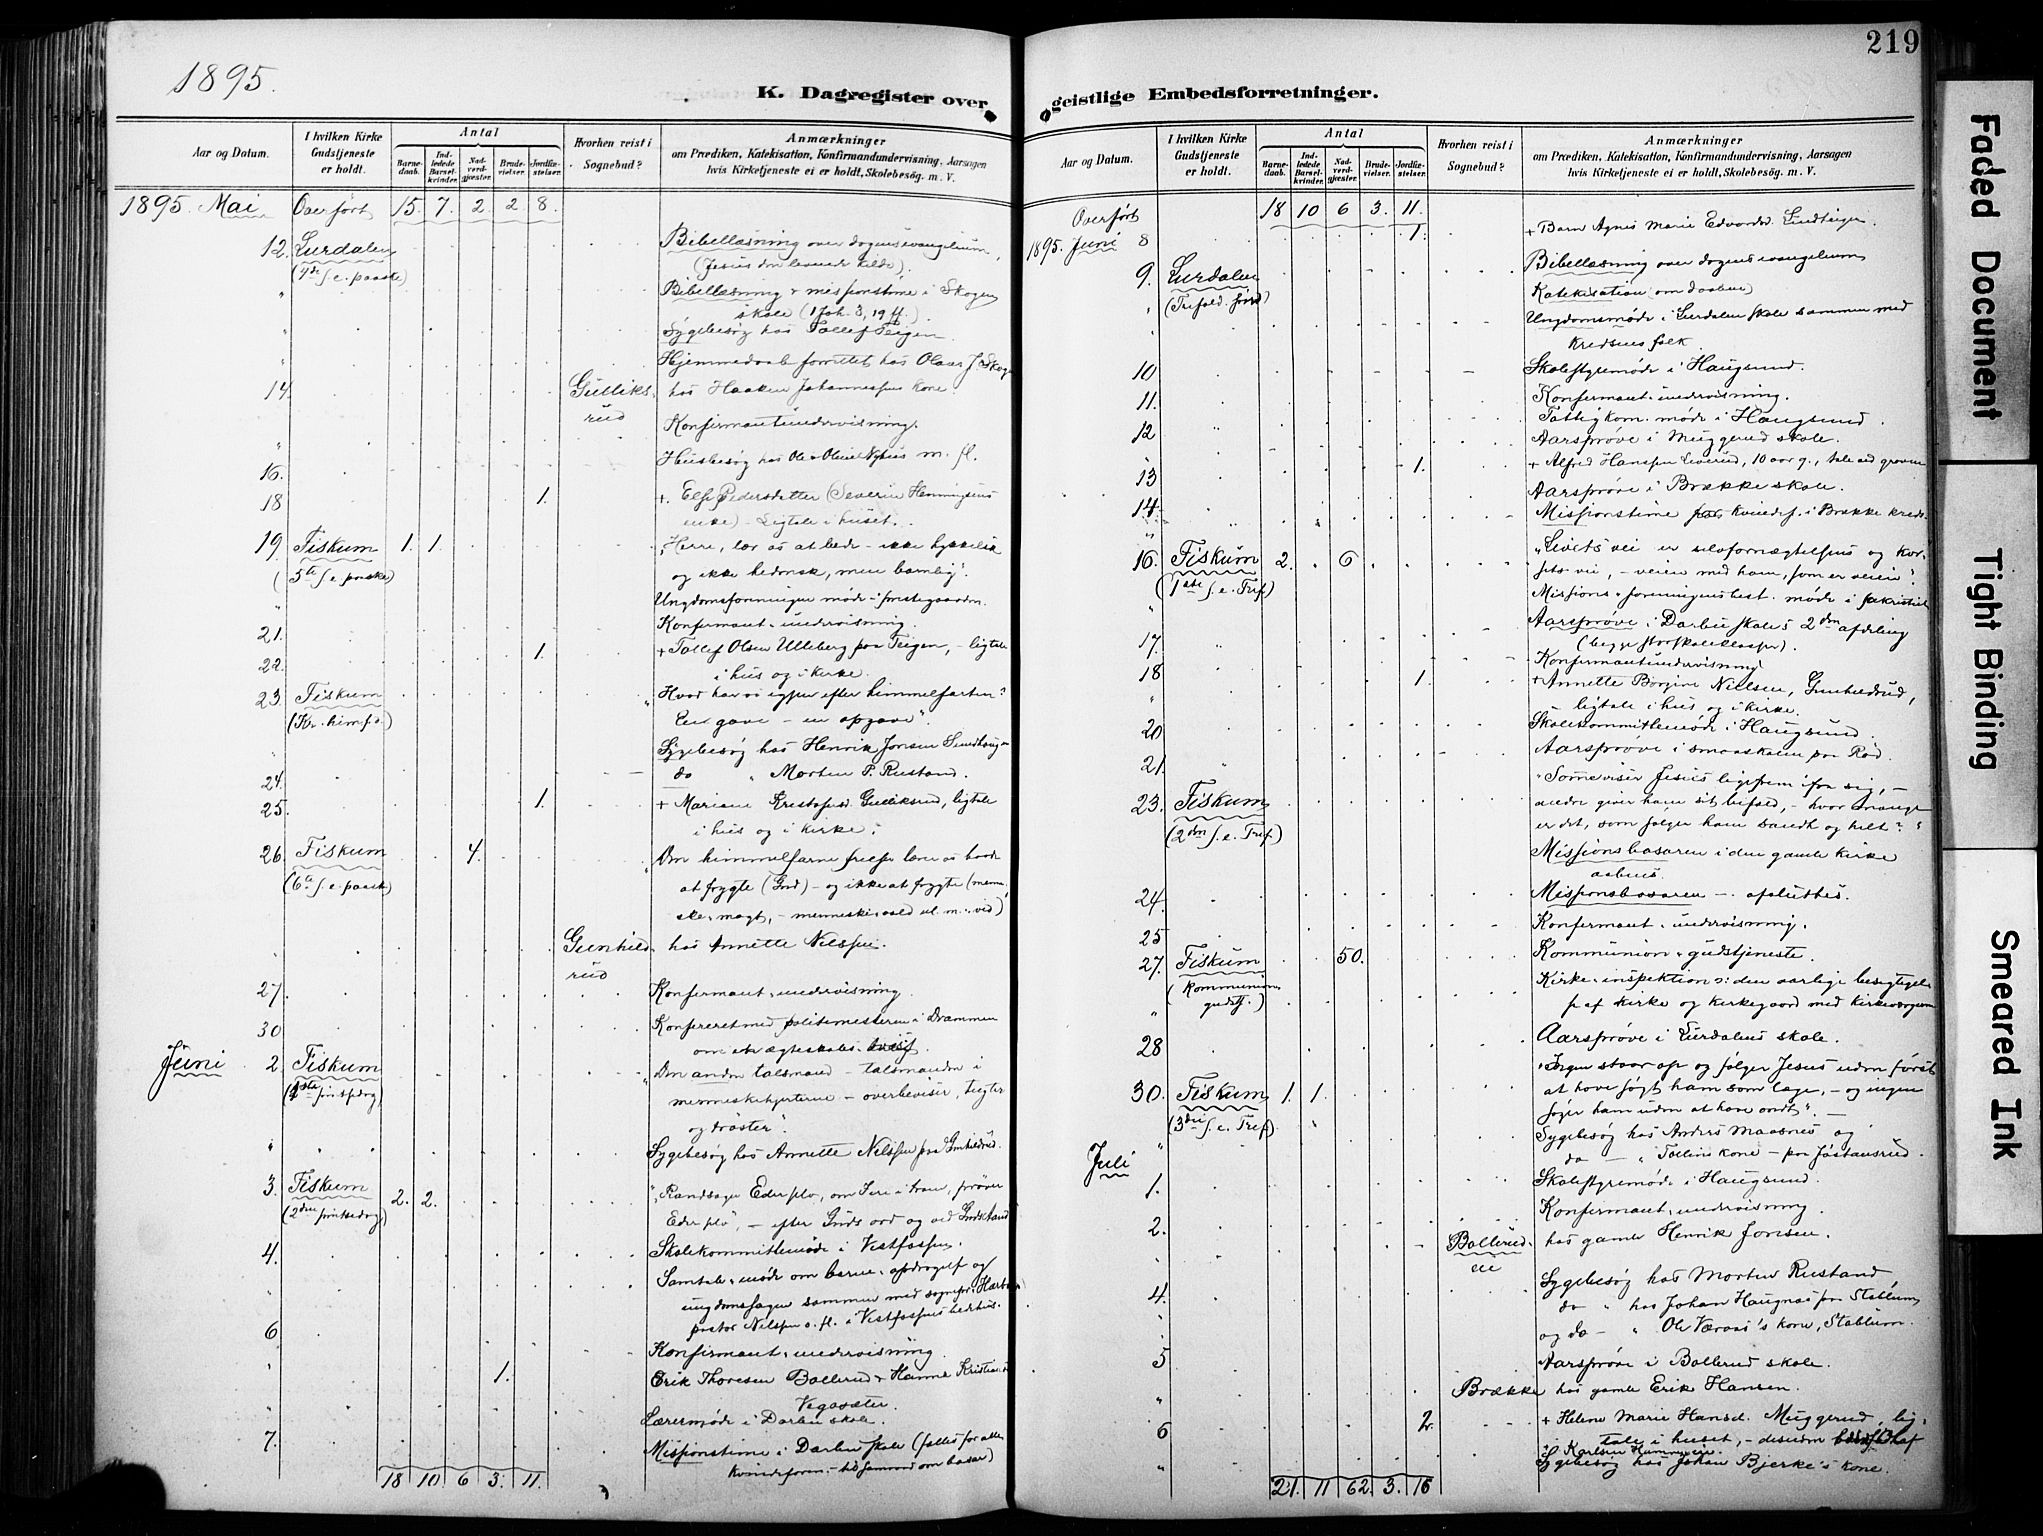 1895.
K. Dagregister over
Aar og Datum.
I hvilken Kirke Gudstjeneste er holdt.
Antal
Barnedaab.
Indledede Barselkvinder.
Nadverdgjæster.
Brudevielser.
Jordfæstelser.
Hvorhen reist i Sognebud?
Anmærkninger
om Prædiken, Katekisation, Konfirmandundervisning, Aarsagen
hvis Kirketjeneste ei er holdt, Skolebesøg. m. V.
1895. Mai Overført 15. 7. 2. 2. 8.
12. Lurdalen Bibellæsning over dagens evangelium,
(4de s. e. paaske) (Jesus den levende kilde).
" Bibellæsning + missionstime i Skogen
skole (1 Joh. 3, 19 ff.).
" Sygebesøg hos Tollef Teigen.
" Hjemmedaab forrettet hos Olaus J. Skogen
14. Gulliksrud hos Haaken Johannessens kone.
Konfirmantundervisning.
" Husbesøg hos Ole + Oluf Nyhus m. fl.
16.
18 1. + Else Pedersdatter (Severin Henningsens
enke) - Ligtale i huset.
19. Fiskum 1. 1. "Herre, lær os at bede - ikke hyklersk
(5te s. e. paaske) og ikke hedensk, men barnlig".
" Ungdomsforeningen møde i prestegaarden.
21. Konfirmant-undervisning.
22. 1. + Tollef Olsen Ulleberg paa Teigen, - ligtale
i hus og i kirke.
23. Fiskum "Hvad har vi igjen efter himmelfarten?
(Kr. him.f.d.) En gave - en opgave".
" Sygebesøg hos Henrik Jonsen
24. do " Morten P. Rustand.
25. 1. + Mariane Kristofersd. Gulliksrud, ligtale
i hus og i kirke.
26. Fiskum 4. "Den himmelfarne frelser lærer os baade
(6te s. e. paask) at frygte (Gud) - og ikke at frygte (menneske-magt,
" Gunhildrud hos Annette Nilssen.
27. Konfirmant-undervisning.
30 Konfereret med politimesteren i Drammen
om et ægteskabs
Juni 2. Fiskum "Den anden talsmand - talsmanden i
(1ste pintsedag) menneskehjerterne - overbeviser, tugter
og trøster".
" Sygebesøg hos Annette Nilssen paa Gunhildrud.
3. Fiskum 2. 2. "Randsager Eder selv, om I ere i troen, prøver
(2den pintsedag) Eder selv", - efter Guds ord og ved Guds Aand
4. Skolekommittemøde i Vestfossen.
Samtale-møde om barne-opdragelse og
ungdomssagen sammen med
pastor Nilssen o. fl. i Vestfossens bedehus.
6 Konfirmant-undervisning.
" 1. Erik Thoresen Bollerud + Hanna Kristiansd.
Vegasæter.
" Lærermøde i Darbu skole.
7. Missionstime i Darbu skole (fælles for alle
kvindeforen. - til samraad om basar)
18 10. 6 3. 11.
219
geistlige Embedsforretninger.
Aar og Datum.
I hvilken Kirke Gudstjeneste er holdt.
Antal
Barnedaab.
Indledede Barselkvinder.
Nadverdgjæster.
Brudevielser.
Jordfæstelser.
Hvorhen reist i Sognebud?
Anmærkninger
om Prædiken, Katekisation, Konfirmandundervisning, Aarsagen
hvis Kirketjeneste ei er holdt, Skolebesøg. m. V.
Overført 18 10 6 3. 11.
1895. Juni 8 1. + Barn Agnes Marie Edvardsd.
9. Lurdalen Bibellæsning over dagens evangelium
(Trefold. sønd) Katekisation (om daaben)
" Ungdomsmøde i Lurdalen skole sammen med
kredsens folk.
10 Skolestyremøde i Haugsund.
11. Konfirmant-undervisning.
" Fattigkom. møde i Haugsund.
12 Aarsprøve i Muggerud skole.
13 1. + Alfred Hanssen Leverud, 10 aar g., tale ved graven
Aarsprøve i Brække skole.
14. Missionstime kvindef. i Brække kreds.
16. Fiskum 2. 6 "Livets vei er selvfornægtelsens og korsets
(1ste s. e. Tref) vei, - veien med ham, som er veien".
" Missions-foreningens best. møde i sakristiet
17. Aarsprøve i Darbu skoles 2den afdeling
(begge storskoleklasser).
18 Konfirmantundervisning.
" 1. + Annette Borgine Nielsen, Gunhildrud,
ligtale i hus og i kirke.
20 Skolekommittemøde i Haugsund.
21. Aarsprøve i smaaskolen paa Rød.
23. Fiskum "Somme viser Jesus ligefrem ifra sig, -
(2den s. e. Tref) andre giver ham sit bifald, - hvor mange
er det, som følger ham sandt og helt?"
Missionsbasaren i den gamle kirke
aabnes.
24. Missionsbasaren - afsluttes.
25 Konfirmant-undervisning.
27. Fiskum 50. Kommunion-gudstjeneste.
(Kommunion gudstj.) Kirke-inspektion: den aarlige besigtigelse
" af kirke og kirkegaard med kirkeværgerne
28 Aarsprøve i Lurdalens skole.
30. Fiskum 1. 1. "Ingen staar op og følger Jesus uden først
(3die s. e. Tref) at have søgt ham som læge, - og ingen
søger ham uden at have ondt". -
" Sygebesøg hos Anders Maasnes og
do - " kone - paa
Juli 1. Skolestyremøde i Haugsund.
2. Konfirmant-undervisning.
" Bollerudeie hos gamle Henrik Jonsen.
4. Sygebesøg hos Morten Rustand
" do " hos Johan Haugnes paa Stablum
og do - " Ole Væraas's kone, Stablum.
5 Aarsprøve i Bollerud skole.
" Brække hos gamle Erik Hansen.
6 2 + Helene Marie Hansd. Muggerud, ligtale
i huset, - desuden
Karlsen
" Sygebesøg hos Johan Bjerke's kone.
21. 11 62. 3. 16
Faded Document
Tight Binding
Smeared Ink